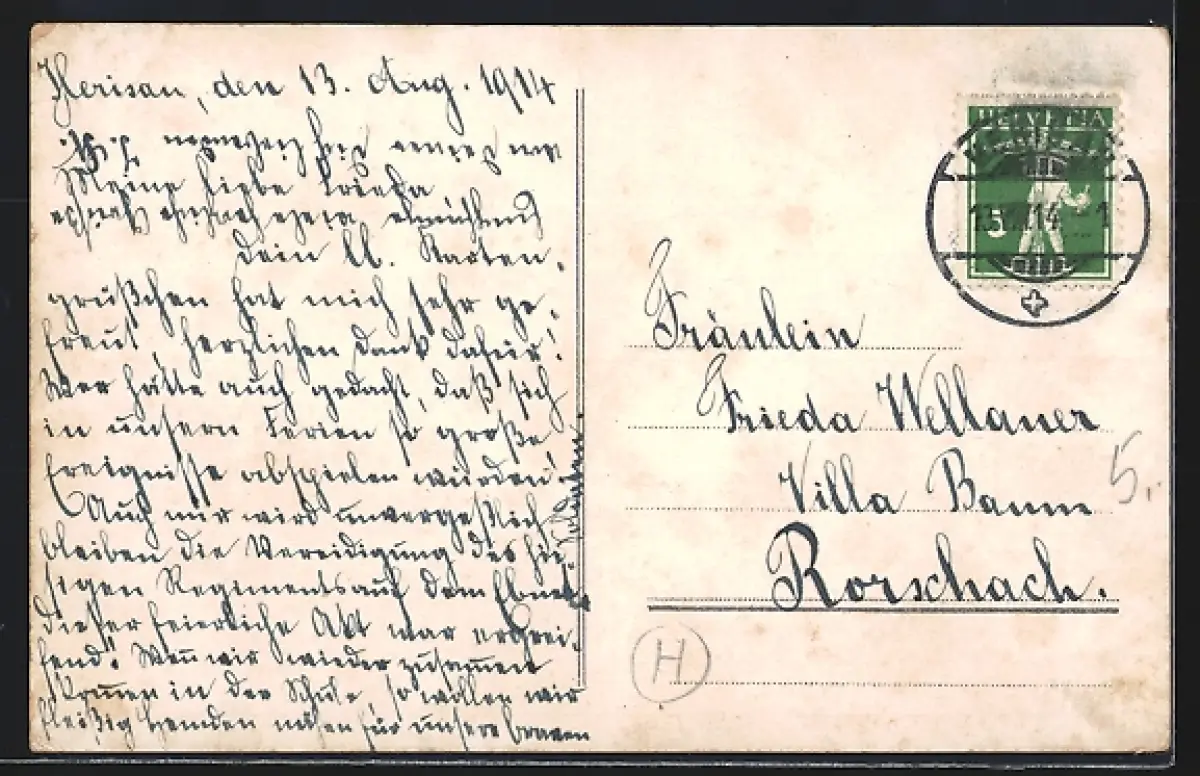 Herisau, den 13. Aug. 1914
Meine liebe Frieda
Dein lb. Karten-
grüßchen hat mich sehr ge-
freut, herzlichen Dank dafür!
Wer hätte auch gedacht, daß sich
in unsern Ferien so große
Ereignisse abspielen würden!
Auch mir wird unvergeßlich
bleiben die Vereidigung des hie-
sigen Regiments auf dem Ebnet
dieser feierliche Akt war ergrei-
fend! Wenn wir wieder zusammen
kommen in der Schule, so wollen wir
fleißig Hemden nähen für unsere braven
HELVETIA
5
13. 14. 1
Fräulein
Frieda Wellauer
Villa Baum
Rorschach.
5.
H